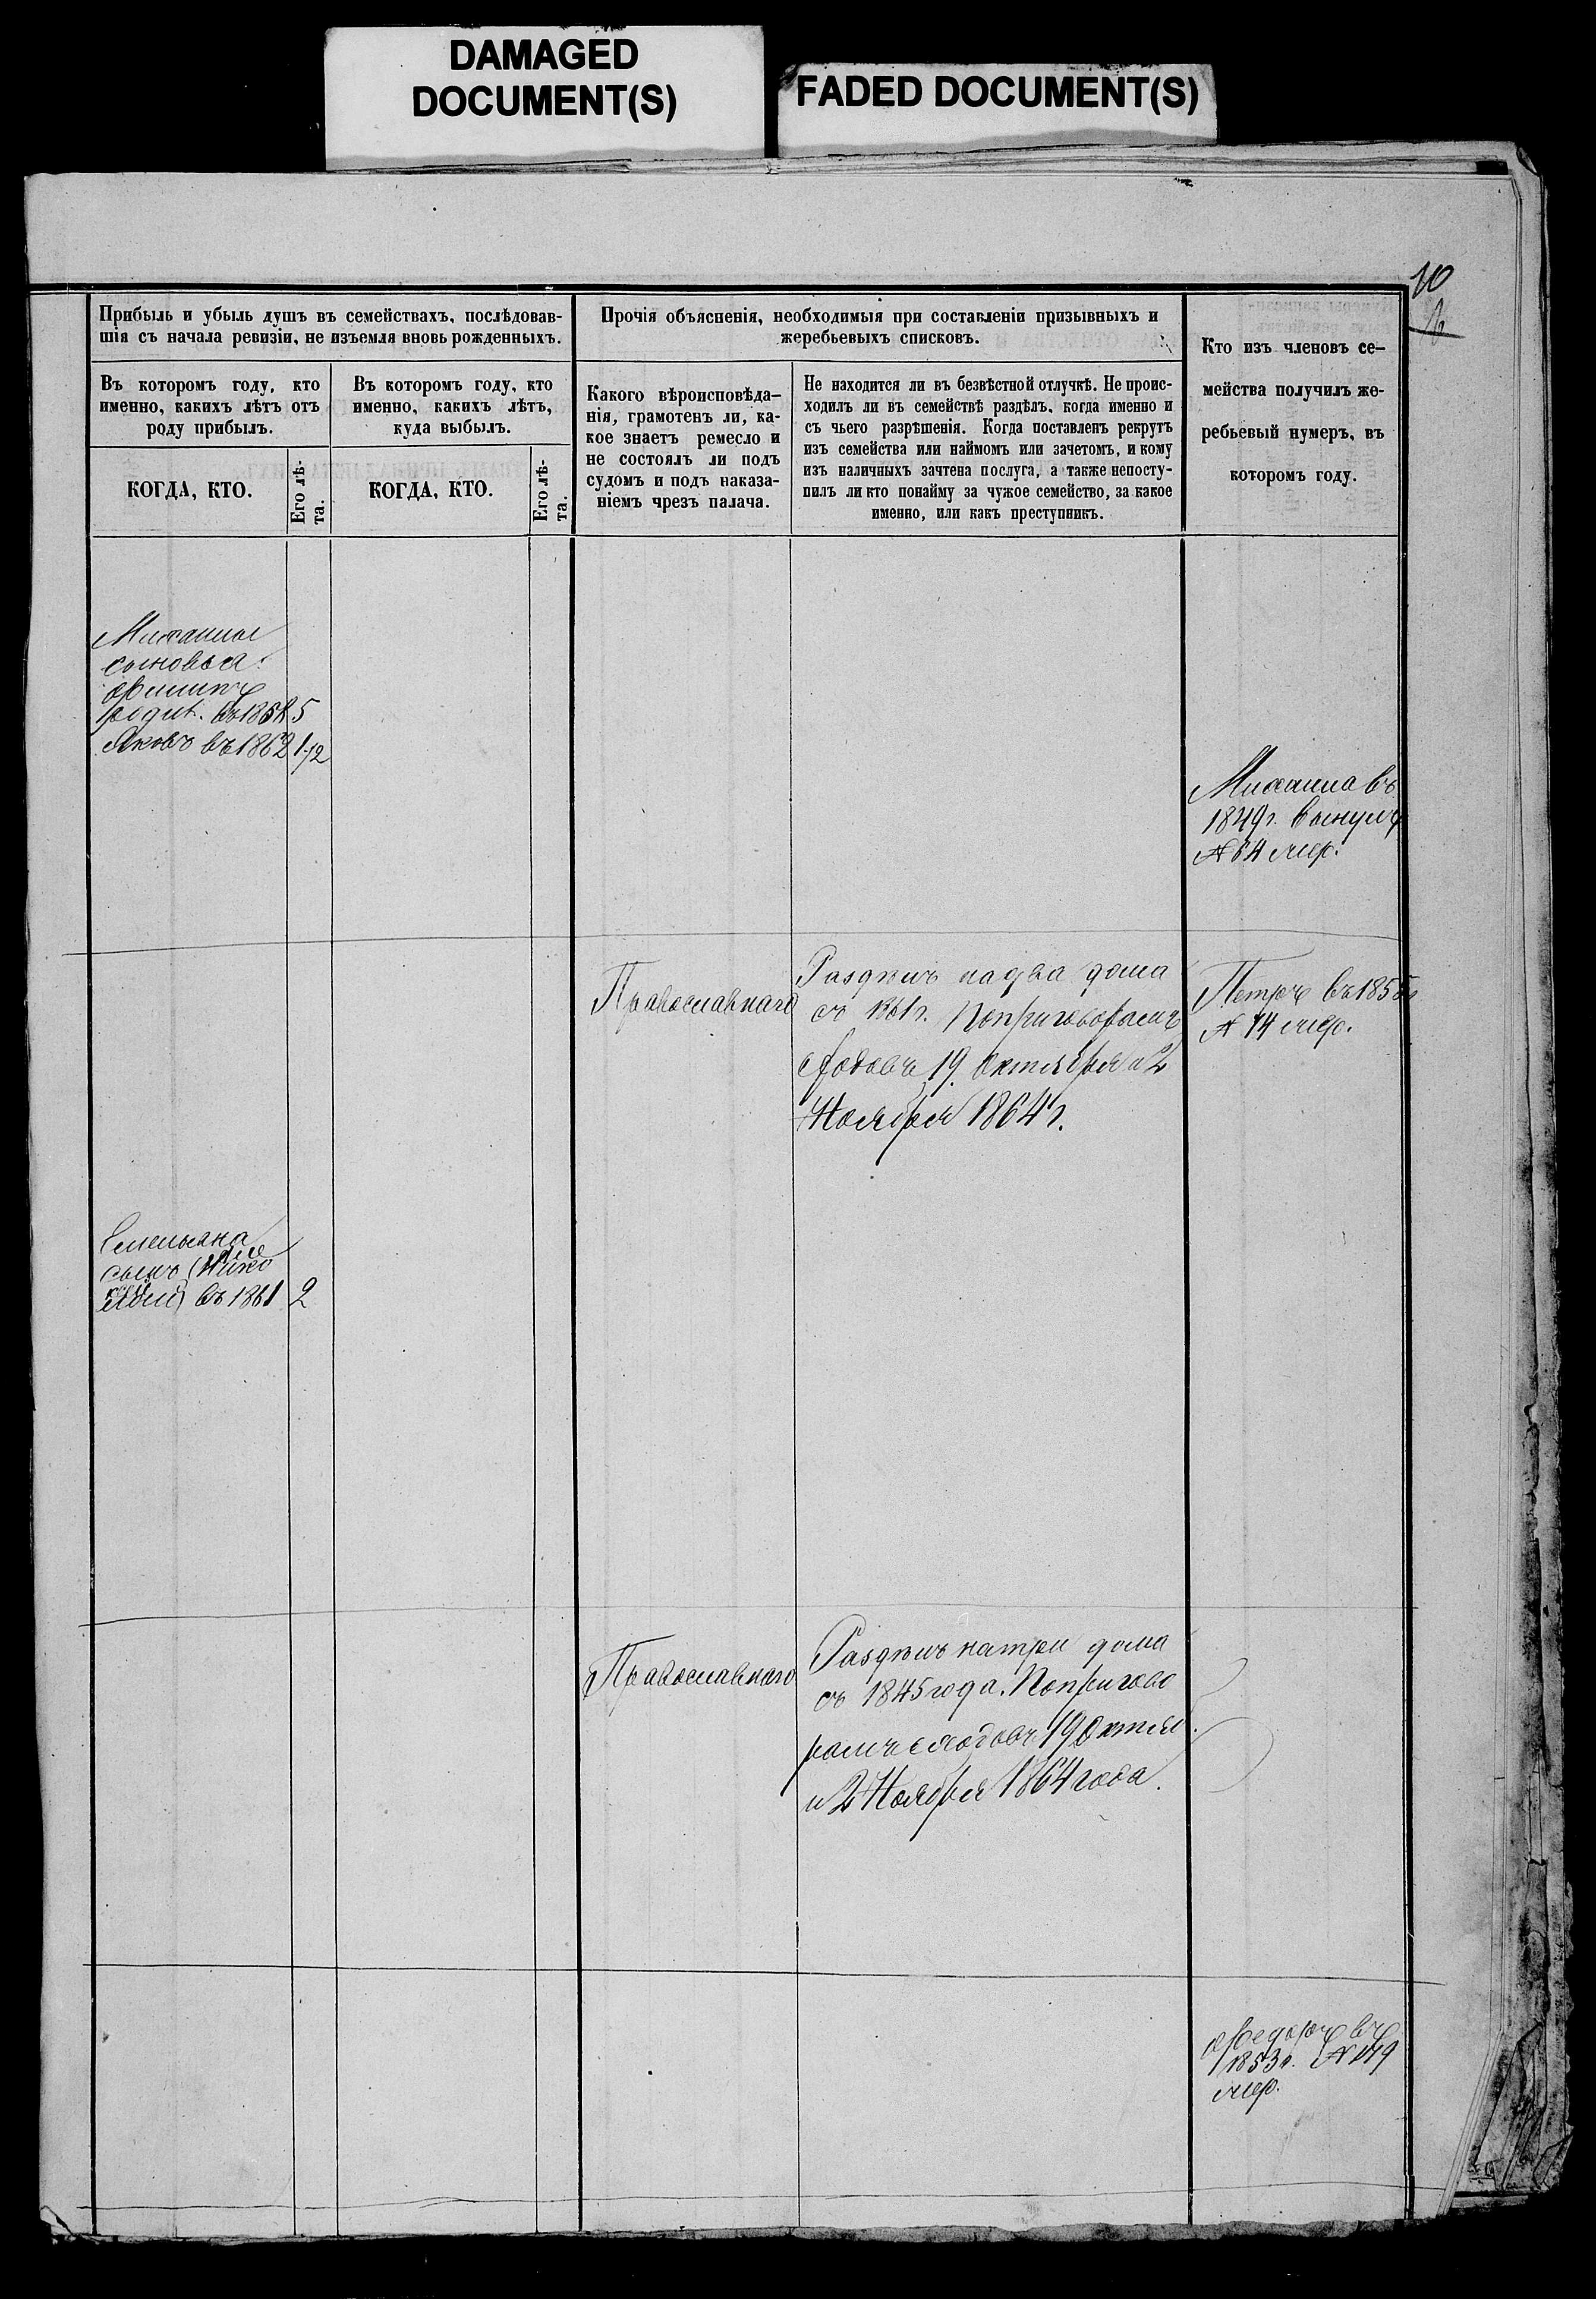 DAMAGED
DOCUMENT(S)
FADED DOCUMENT(S)
10
Прибыль и убыль душъ въ семействахъ, послѣдовав-
шія съ начала ревизіи, не изъемля вновь рожденныхъ.
Въ которомъ году, кто
именно, какихъ лѣтъ отъ
роду прибылъ.
КОГДА, КТО.
Его лѣ-
та.
Въ которомъ году, кто
именно, какихъ лѣтъ,
куда выбылъ.
КОГДА, КТО.
Его лѣ-
та.
Прочія объясненія, необходимыя при составленіи призывныхъ и
жеребьевыхъ списковъ.
Какого вѣроисповѣда-
нія, грамотенъ ли, ка-
кое знаетъ ремесло и
не состоялъ ли подъ
судомъ и подъ наказа-
ніемъ чрезъ палача.
Не находится ли въ безвѣстной отлучкѣ. Не проис-
ходилъ ли въ семействѣ раздѣлъ, когда именно и
съ чьего разрѣшенія. Когда поставленъ рекрутъ
изъ семейства или наймомъ или зачетомъ, и кому
изъ наличныхъ зачтена послуга, а также непосту-
пилъ ли кто понайму за чужое семейство, за какое
именно, или какъ преступникъ.
Кто изъ членовъ се-
мейства получилъ же-
ребьевый нумеръ, въ
которомъ году.
Михаилы
сыновья:
Филипъ
родил. въ 1858 5
Яковъ въ 1862 1/2
Михаила въ
1849г. вынулъ
№ 64 мер.
Православнаго
Раздѣлъ на два дома
съ 1861г. Поприговорамъ
сходовъ 19 Октября и 2
Ноября 1864г.
Петръ въ 1855г
№ 14 мер.
Емельяна
сынъ
въ 1861 2
Православнаго
Раздѣлъ натри дома
съ 1845 года. Попригово
рамъ сходовъ 19 Октяб.
и 2 Ноября 1864 года.
Федоръ въ
1853г. № 149
мер.